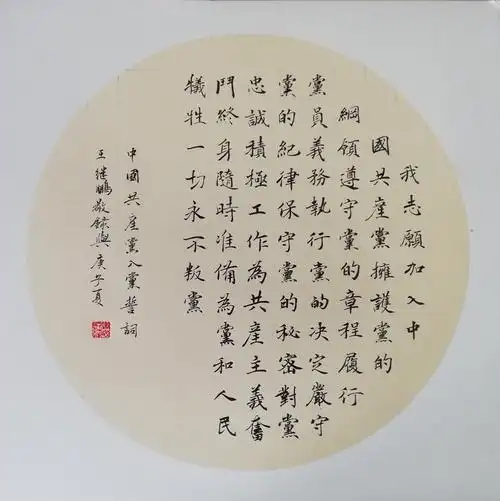 我志願加入中
國共産黨擁護黨的
綱領遵守黨的章程履行
黨員義務執行黨的决定嚴守
黨的紀律保守黨的秘密對黨
忠誠積極工作為共産主義奮
鬥終身隨時准備為黨和人民
犧牲一切永不叛黨
中國共産黨入黨誓詞
王继鵬敬録與庚子夏